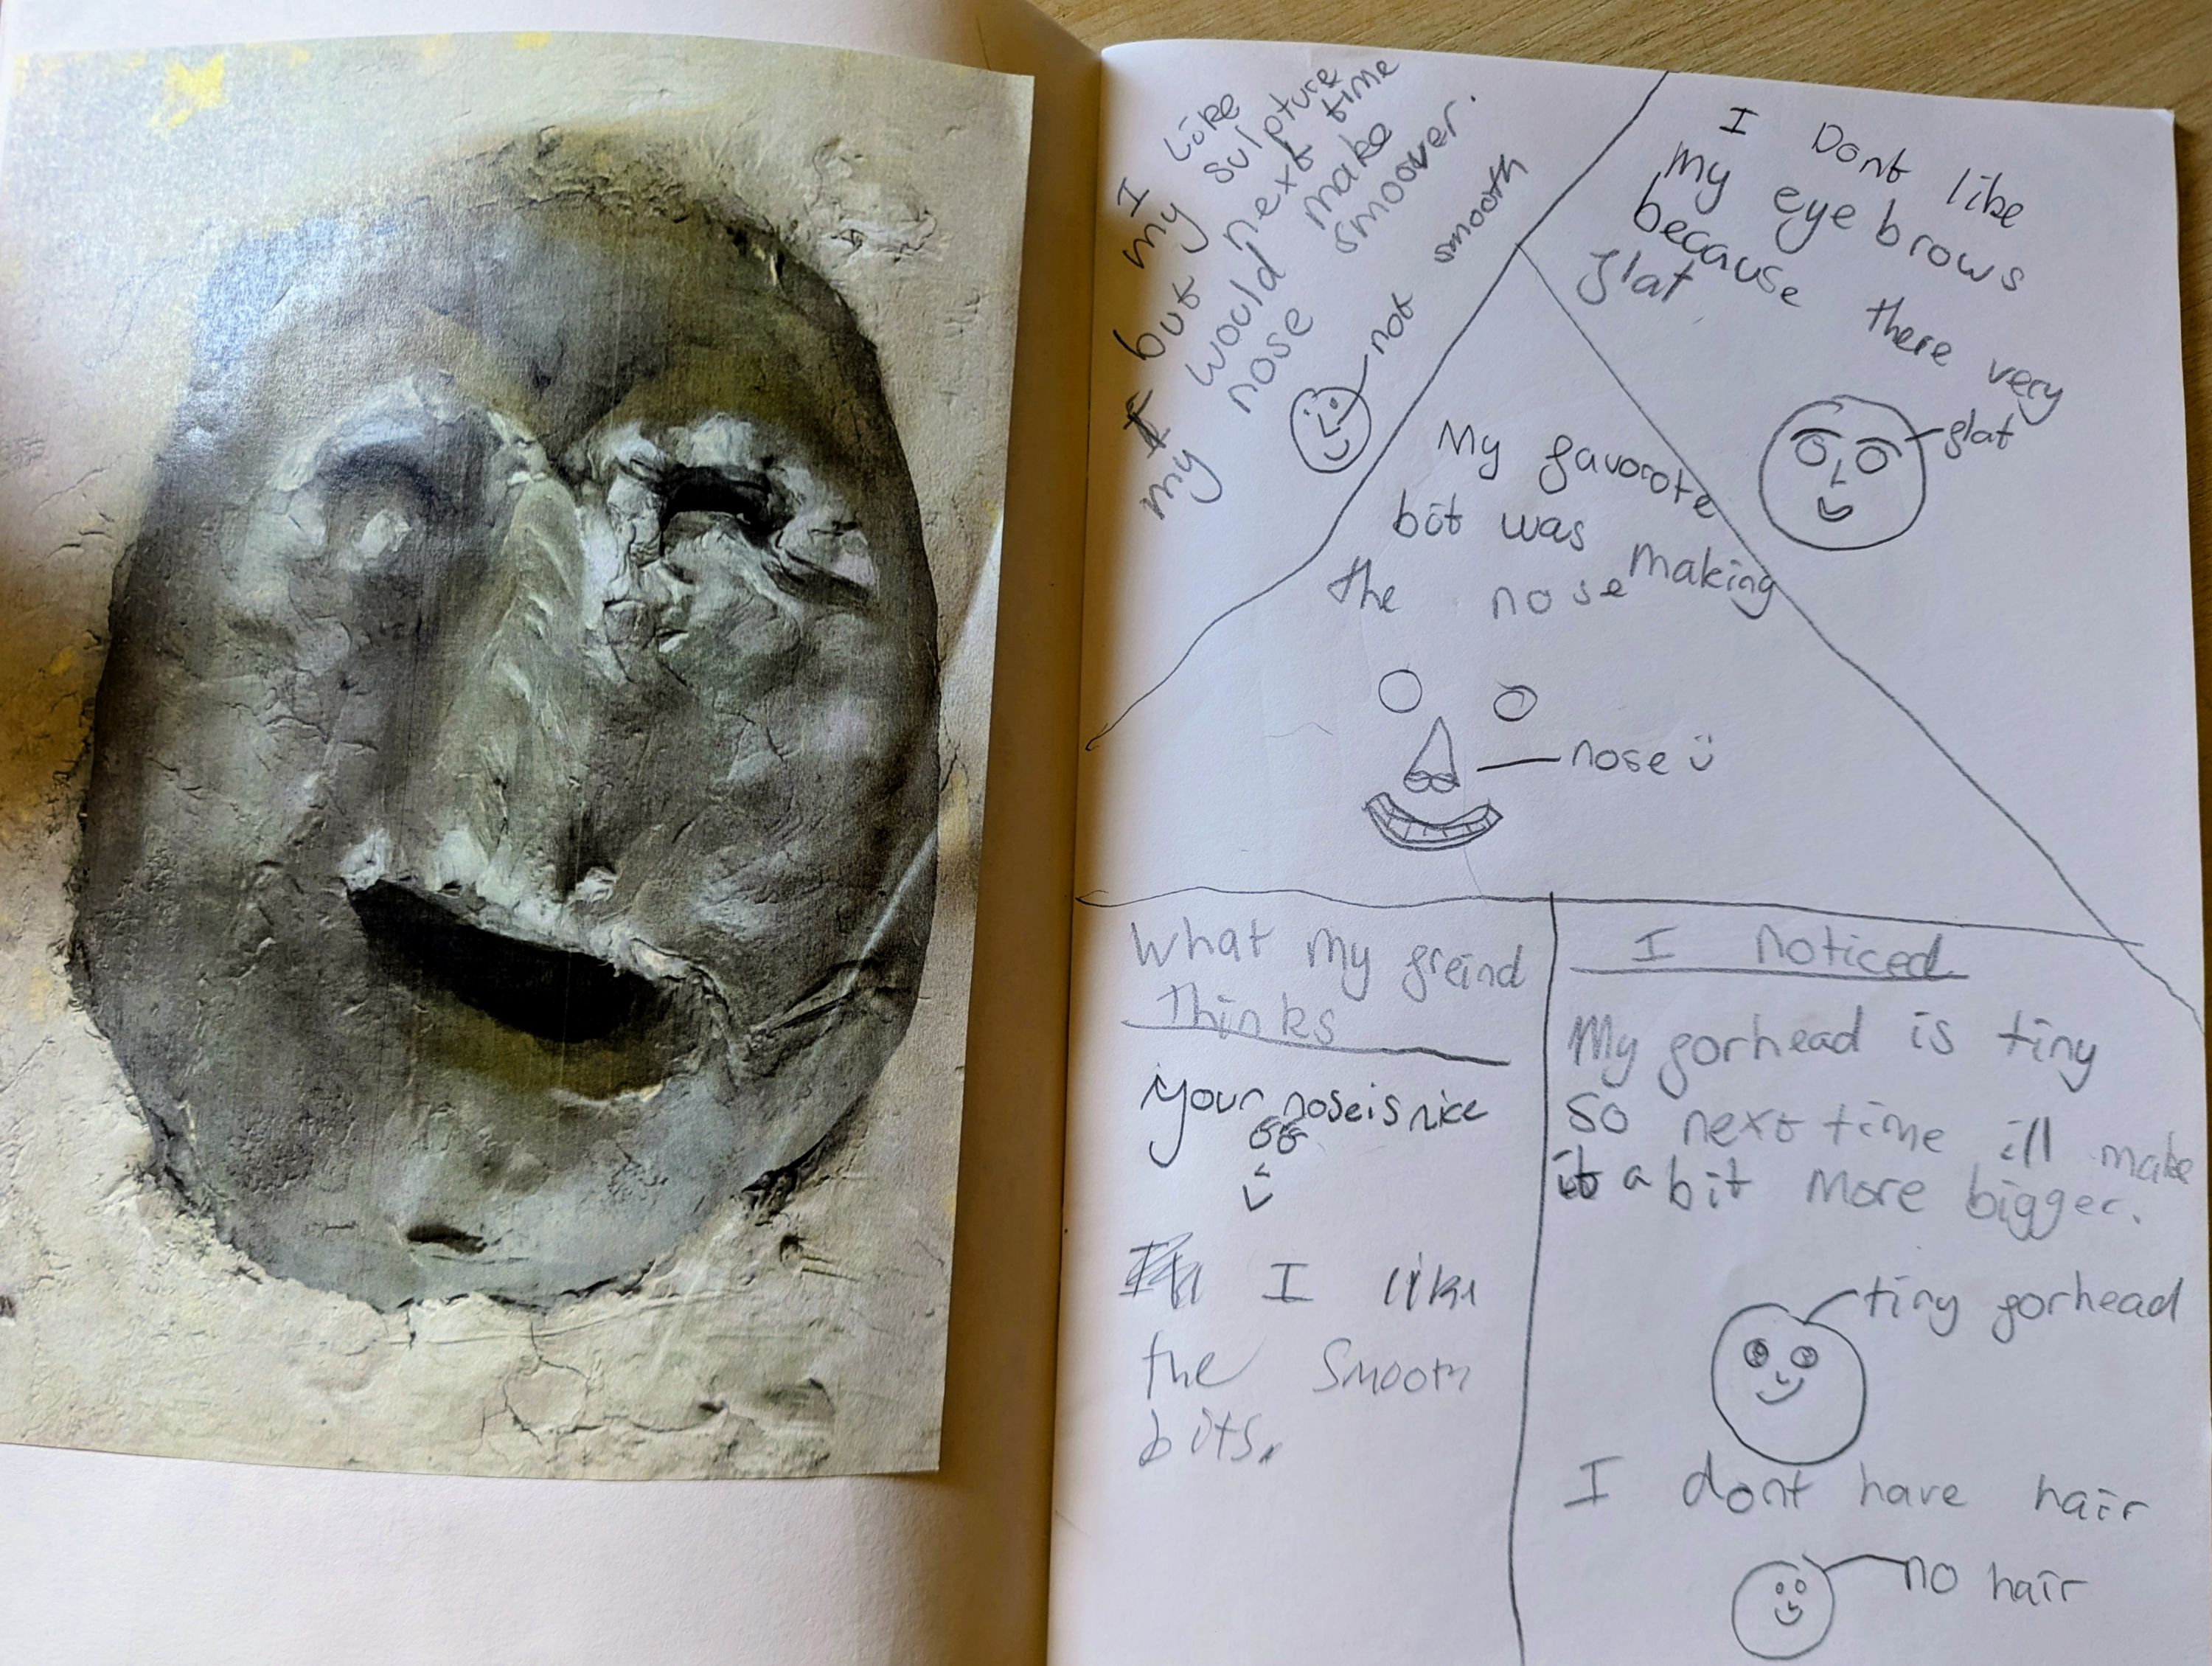 I like
my sulpture
but next time
I would make
my nose smoover.
not smooth
I Dont like
my eye brows
because there very
flat
flat
My favorote
bit was making
the nose
nose
What my freind
Thinks
your nose is nice
I like
the smooth
bits.
I noticed
My forhead is tiny
so next time ill make
it a bit more bigger.
tiny forhead
I dont have hair
no hair